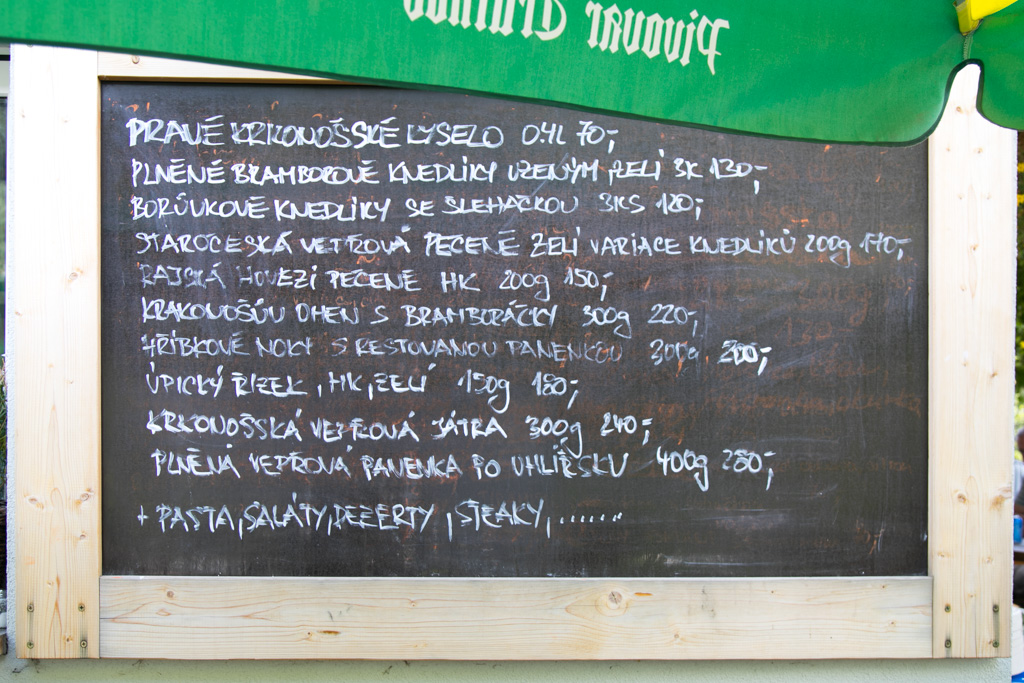 Pivovar Trutnov
PRAVÉ KRKONOŠSKÉ KYSELO 0.4L 70,-
PLNĚNÉ BRAMBOROVÉ KNEDLÍKY UZENÝM, ZELÍ 3K 130,-
BORŮVKOVÉ KNEDLÍKY SE SLEHAČKOU 3KS 120,-
STAROČESKÁ VEPŘOVÁ PEČENĚ ZELÍ VARIACE KNEDLÍKŮ 200g 170,-
RAJSKÁ HOVEZÍ PEČENĚ HK 200g 150,-
KRAKONOŠŮV OHEŇ S BRAMBORÁČKY 300g 220,-
HŘÍBKOVÉ NOKY S RESTOVANOU PANENKOU 300g
ÚPICKÝ ŘÍZEK, HK, ZELÍ 150g 180,-
KRKONOŠSKÁ VEPŘOVÁ JÁTRA 300g 240,-
PLNĚNÁ VEPŘOVÁ PANENKA PO UHLÍŘSKU 400g 280,-
+ PASTA, SALÁTY, DEZERTY, STEAKY, ......